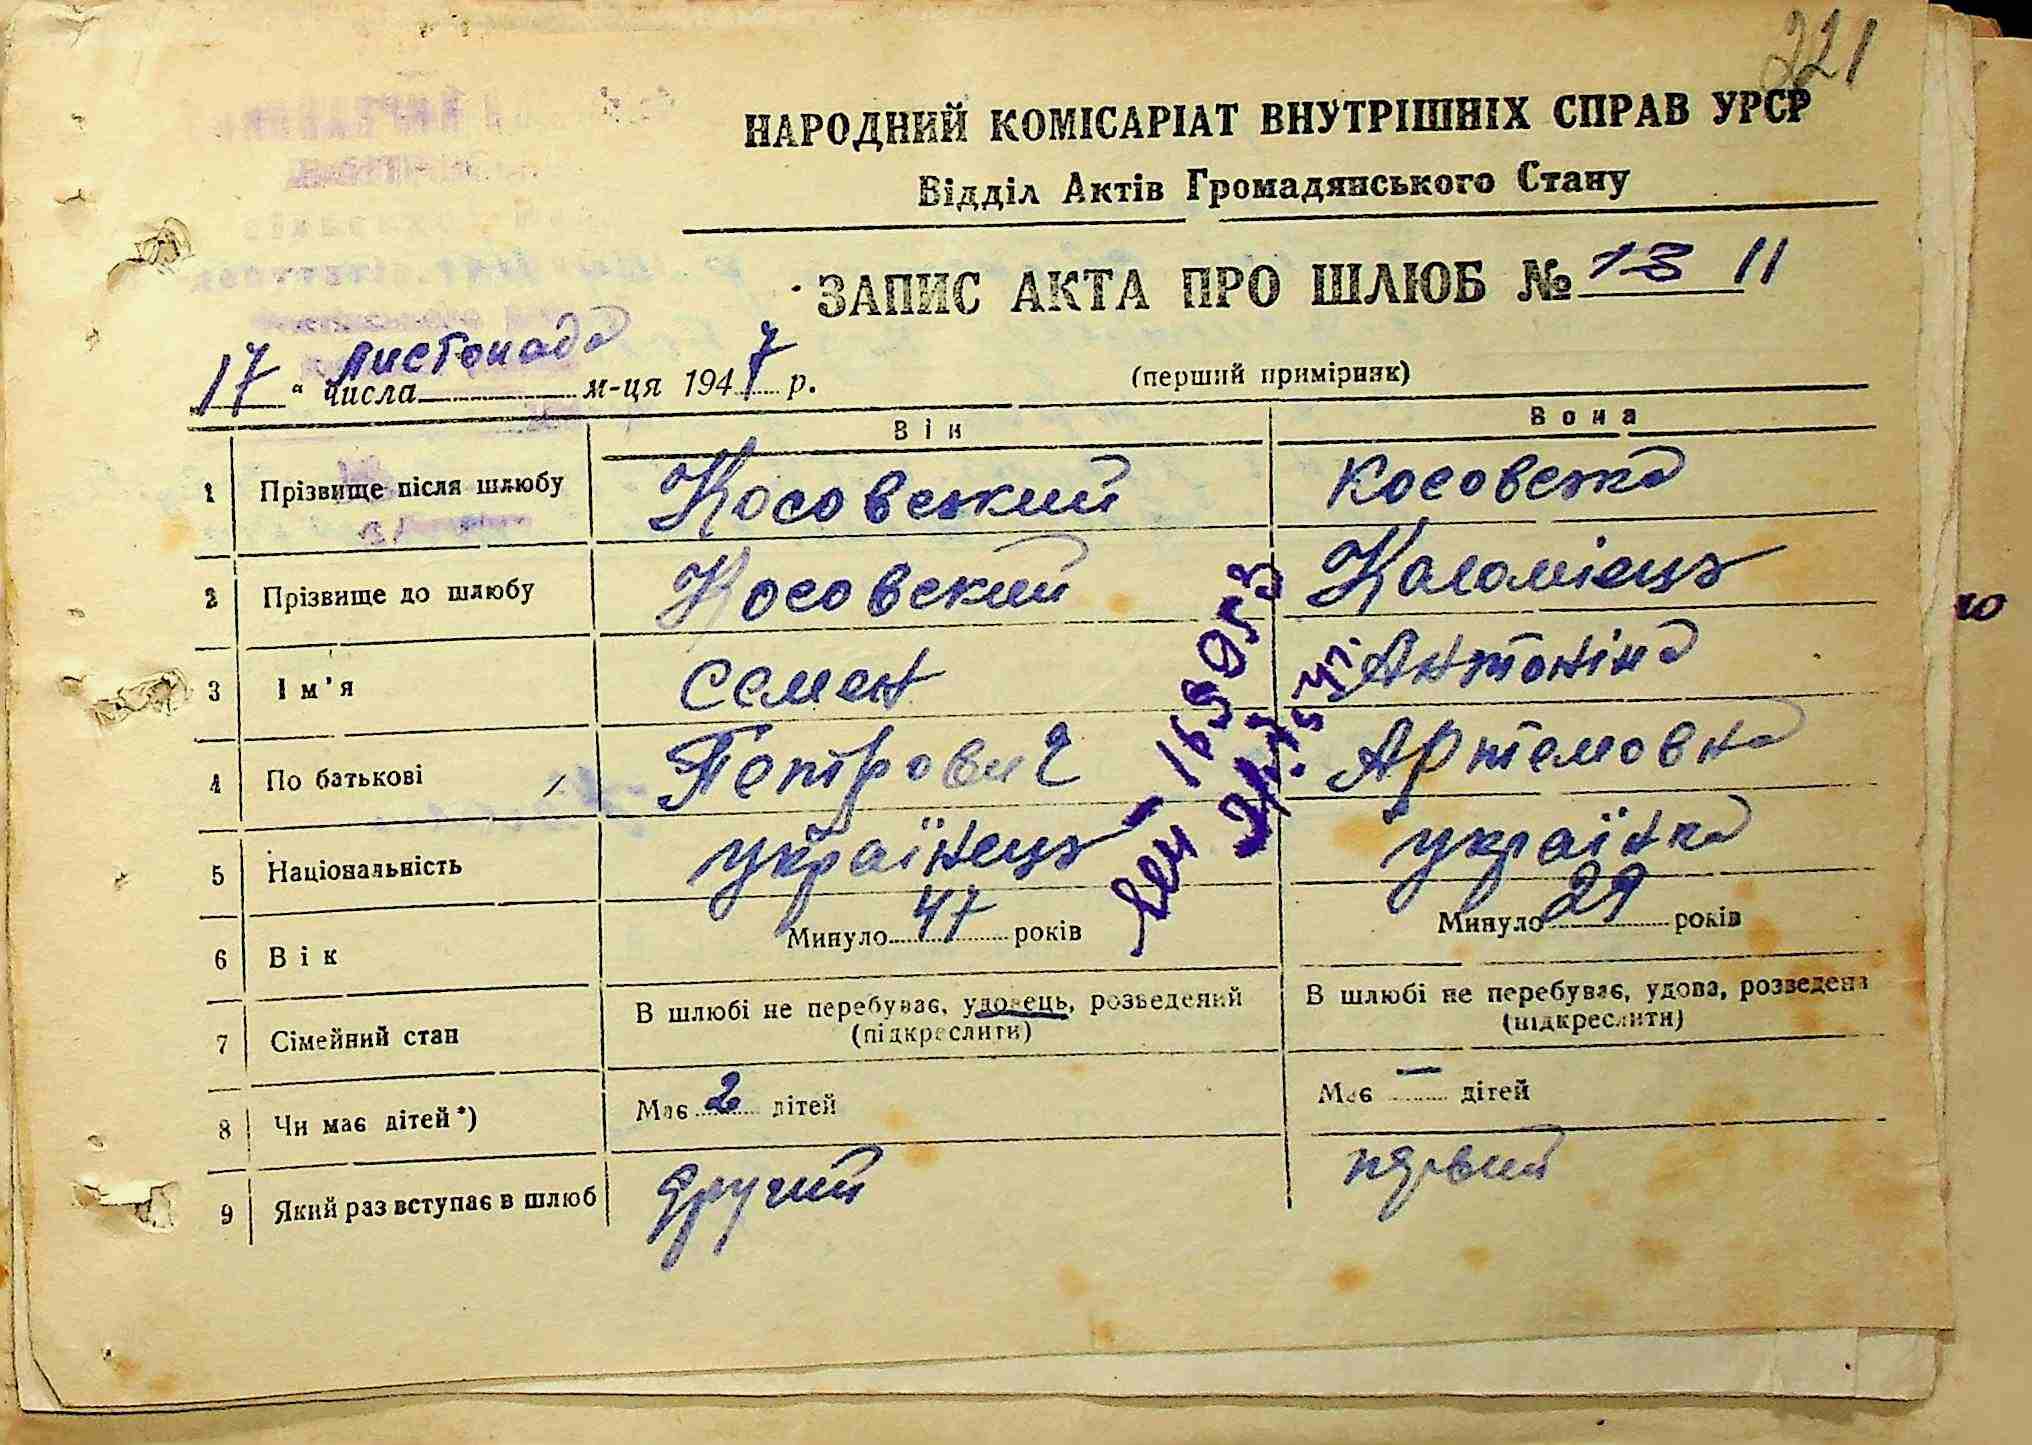 221
НАРОДНИЙ КОМІСАРІАТ ВНУТРІШНІХ СПРАВ УРСР
Відділ Актів Громадянського Стану
ЗАПИС АКТА ПРО ШЛЮБ № 13 11
17 " числа листопада м-ця 1947 р. (перший примірник)
Він Вона
1 Прізвище після шлюбу Косовський Косовська
2 Прізвище до шлюбу Косовский Коломієць
3 Ім'я Семен Антоніна
4 По батькові Петрович Артемовна
5 Національність українець українка
6 Вік Минуло 47 років Минуло 29 років
7 Сімейний стан В шлюбі не перебуває, удовець, розведений В шлюбі не перебуває, удова, розведена
(підкреслити) (підкреслити)
8 Чи має дітей *) Має 2 дітей Має — дітей
9 Який раз вступає в шлюб другий первий
ю